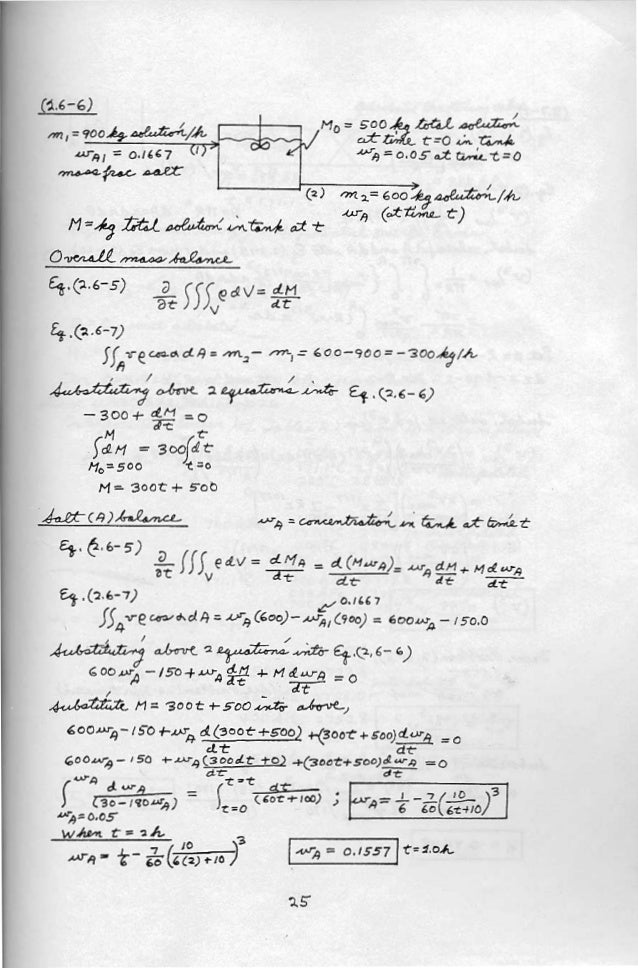 (2.6-6)
m₁ = 900 kg solution/h (1)
w_A1 = 0.1667
mass frac salt
M₀ = 500 kg total solution
at time t=0 in tank
w_A = 0.05 at time t=0
(2) m₂ = 600 kg solution/h
w_A (at time t)
M = kg total solution in tank at t
Overall mass balance
Eq. (2.6-5) ∂/∂t ∭_V ρ dV = dM/dt
Eq. (2.6-7)
∬_A vρ cos α dA = m₂ - m₁ = 600-900 = -300 kg/h
Substituting above 2 equations into Eq. (2.6-6)
-300 + dM/dt = 0
∫_{M₀=500}^{M} dM = 300 ∫_{t=0}^{t} dt
M = 300t + 500
Salt (A) balance w_A = concentration in tank at time t
Eq. (2.6-5) ∂/∂t ∭_V ρ dV = dM_A/dt = d(Mw_A)/dt = w_A dM/dt + M dw_A/dt
Eq. (2.6-7) 0.1667
∬_A vρ cos α dA = w_A (600) - w_A1 (900) = 600w_A - 150.0
Substituting above 2 equations into Eq. (2,6-6)
600 w_A - 150 + w_A dM/dt + M dw_A/dt = 0
Substitute M = 300t + 500 into above,
600w_A - 150 + w_A d(300t+500)/dt + (300t + 500) dw_A/dt = 0
600w_A - 150 + w_A (300dt + 0)/dt + (300t+500) dw_A/dt = 0
∫_{w_A=0.05}^{w_A} dw_A/(30-180w_A) = ∫_{t=0}^{t=t} dt/(60t+100) ; w_A = 1/6 - 7/60 (10/(6t+10))³
When t = 2h
w_A = 1/6 - 7/60 (10/(6(2)+10))³ w_A = 0.1557 t=2.0h
25